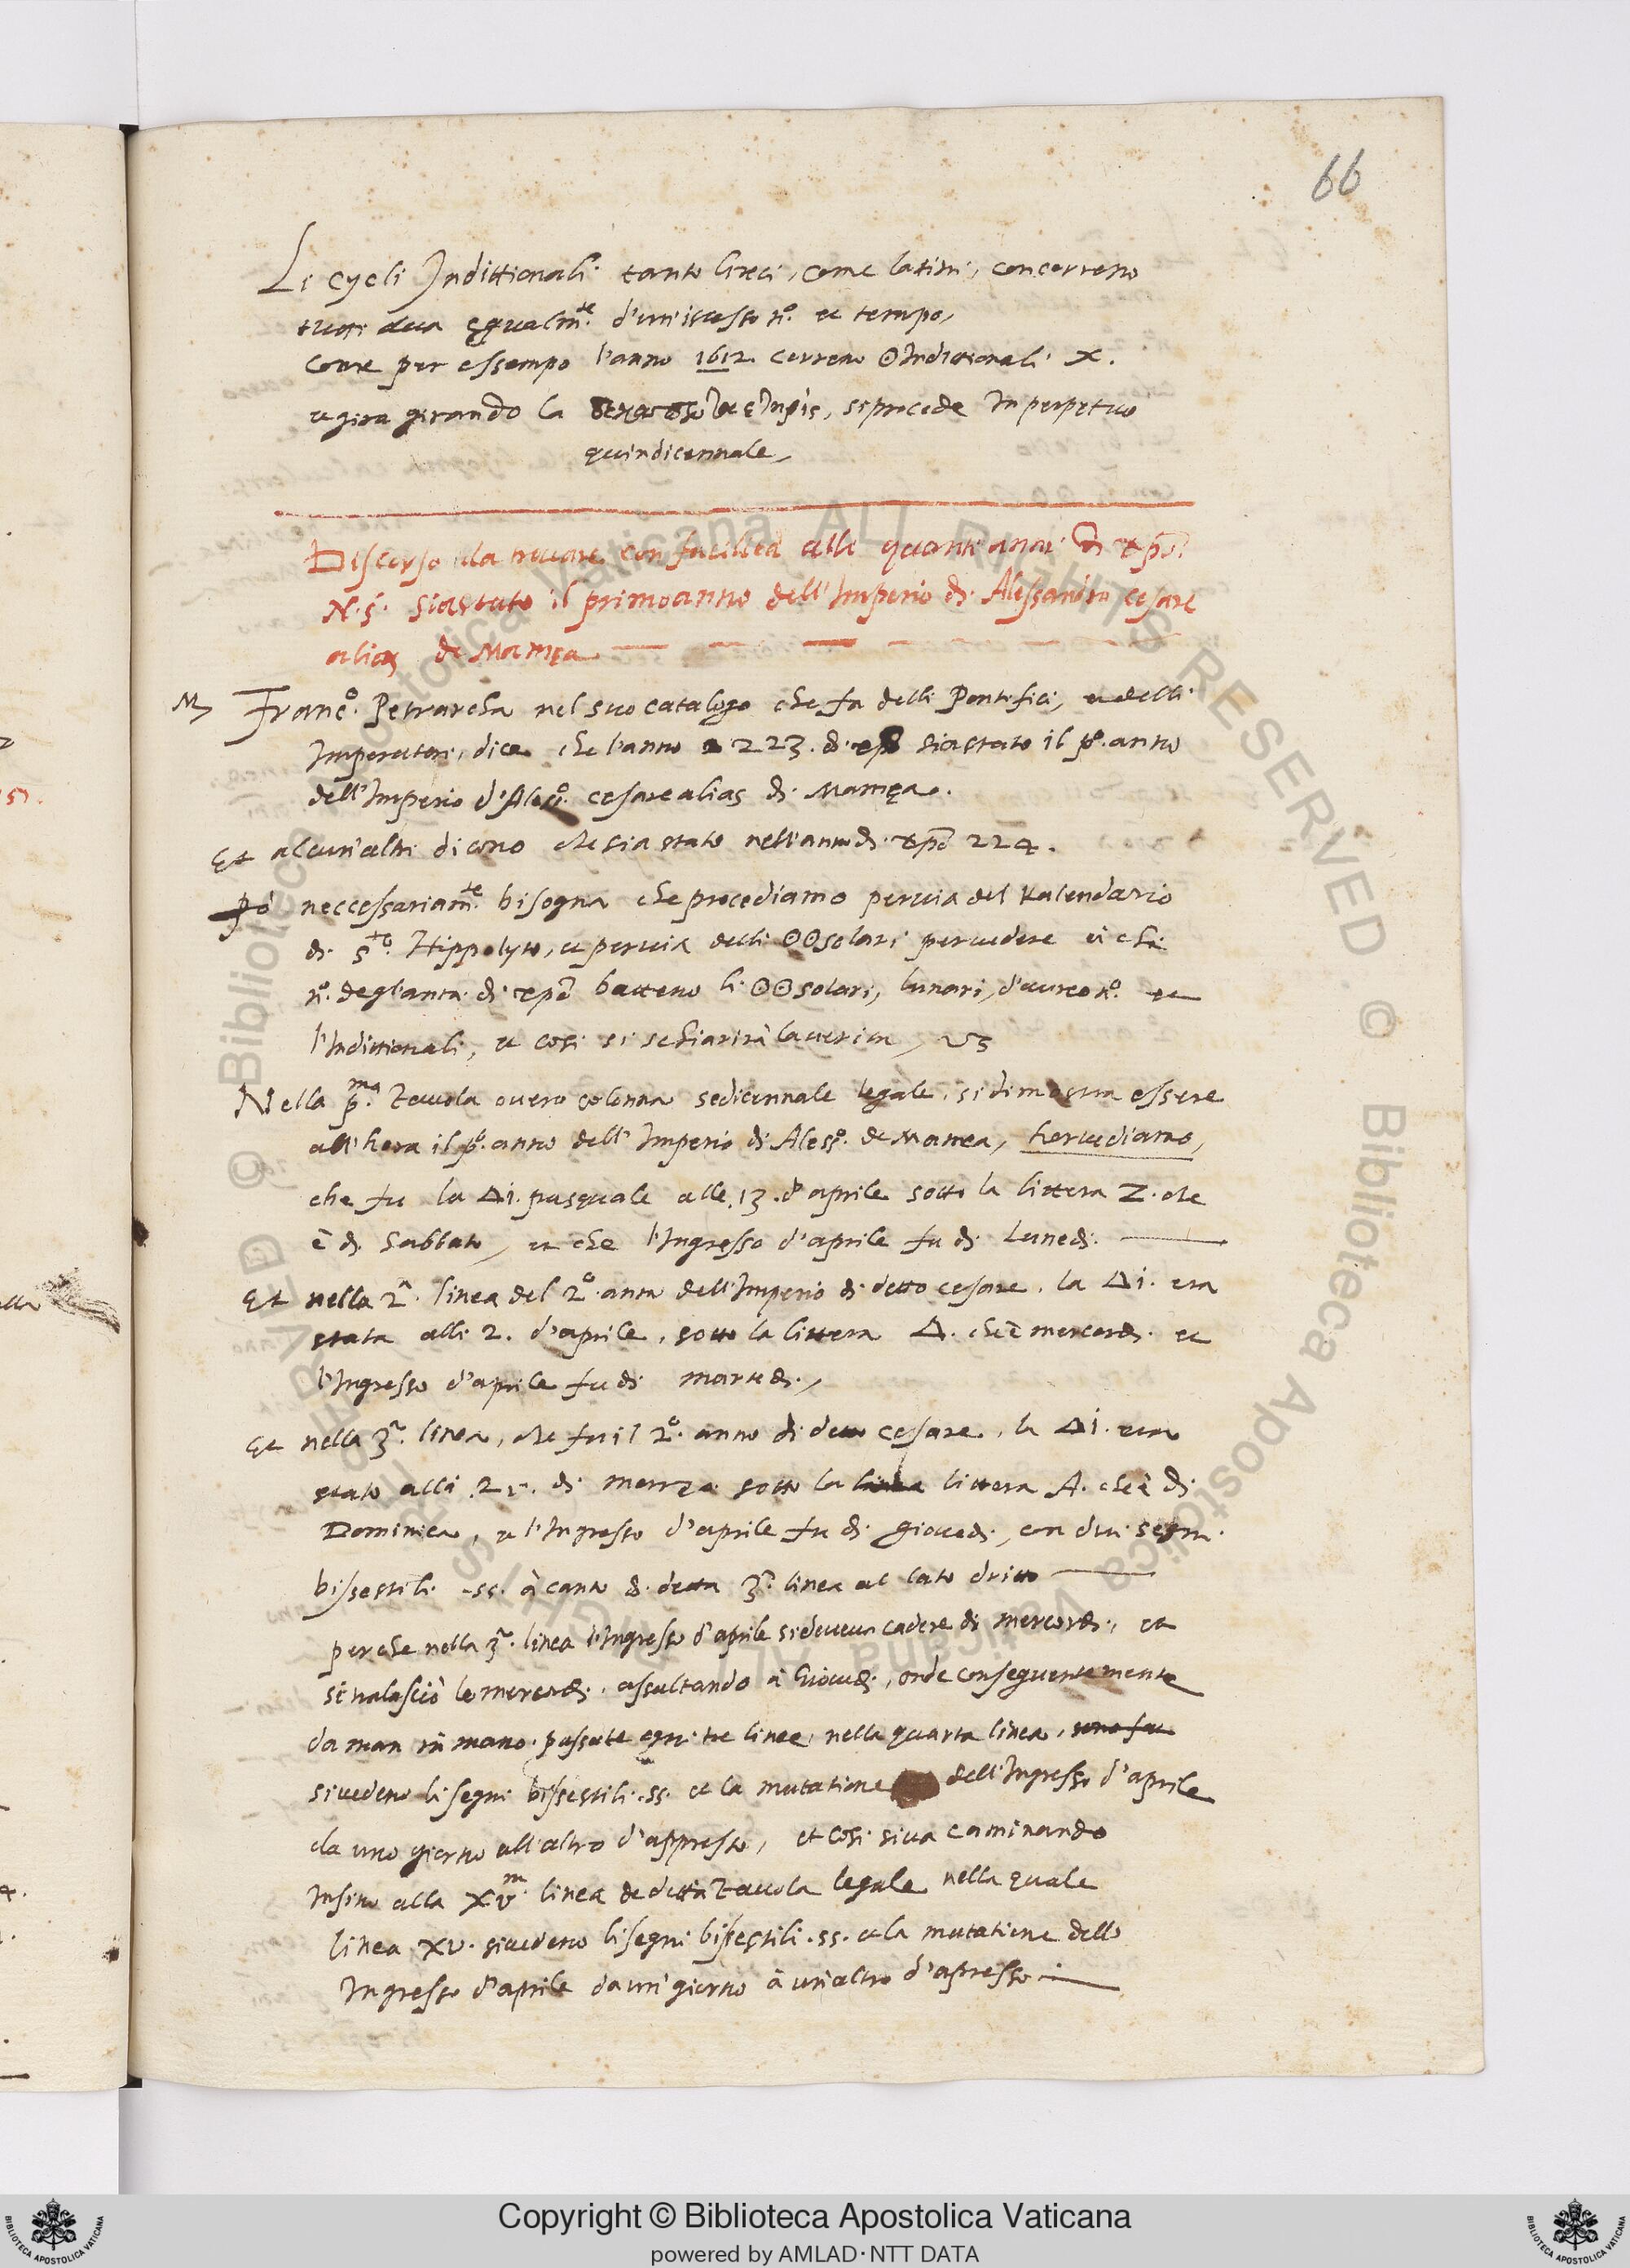 66
Li cycli Indittionali tanto Greci, come latini, concorreno
tutti dua ęqualm.te d'un'istesso n.o et tempo,
come per essempo l'anno 1612 correno ⊙ Indittionali X.
girando la si procede In perpetuo
quindicennale,
Discorso da trovare con facilità alli quanti anni di xpõ
N.S. sia stato il primo anno dell'Imperio di Alessandro cesare
alias de Mamęa
M Franc.o Petrarcha nel suo catalogo che fa delli Pontefici, et delli
Imperatori, dice che l'anno 223. di xpõ sia stato il p.o anno
dell'Imperio d'Aless.o cesare alias di Mamęa.
Et alcun'altri dicono che sia stato nell'anno di xpõ 224.
Pò neccessariam.te bisogna che procediamo per via del Kalendario
di S.to Hippolyto, et per via delli ⊙⊙ solari per vedere
n.o degl'anni di xpõ batteno li ⊙⊙ solari, lunari, d'aureo n.o et
l'Indittionali, et cosi si schiarirà la verità,
Nella p.ma Tavola overo colonna sedicennale legale, si dimostra essere
all'hora il p.o anno dell'Imperio di Aless.o de Mamea, hor vediamo,
che fu la Δi. pasquale alle .13. d'aprile sotto la littera Z. che
è di Sabbato, et che l'Ingresso d'aprile fu di Lunedi.
Et nella 2.a linea del 2.o anno dell'Imperio di detto cesare, la Δi. era
stata alli 2. d'aprile, sotto la littera Δ. che è mercordi. et
l'Ingresso d'aprile fu di martedi,
Et nella 3.a linea, che fu il 2.o anno di detto cesare, la Δi. era
stato alli di marzo sotto la littera A. che è di
Dominica, et l'Ingresso d'aprile fu di giovedi, con dui segni
bissestili .ss. à canto di detta 3.a linea al lato dritto
perche nella 3.a linea l'Ingresso d'aprile si doveva cadere di mercordi, et
si tralasciò lo mercordi, assaltando à Giovedi, onde conseguentemente
da man in mano passate ogni tre linee, nella quarta linea,
si vedeno li segni bissestili .ss. et la mutatione dell'Ingresso d'aprile
da uno giorno all'altro d'appresso, et cosi si va caminando
Insino alla XV.m linea de detta Tavola legale nella quale
linea XV. si vedeno li segni bissestili .ss. et la mutatione dello
Ingresso d'aprile da un'giorno à un'altro d'apresso
© Biblioteca Apostolica Vaticana ALL RIGHTS RESERVED © Biblioteca Apostolica Vaticana ALL RIGHTS RESERVED
Copyright © Biblioteca Apostolica Vaticana
powered by AMLAD·NTT DATA
BIBLIOTECA APOSTOLICA VATICANA
BIBLIOTECA APOSTOLICA VATICANA